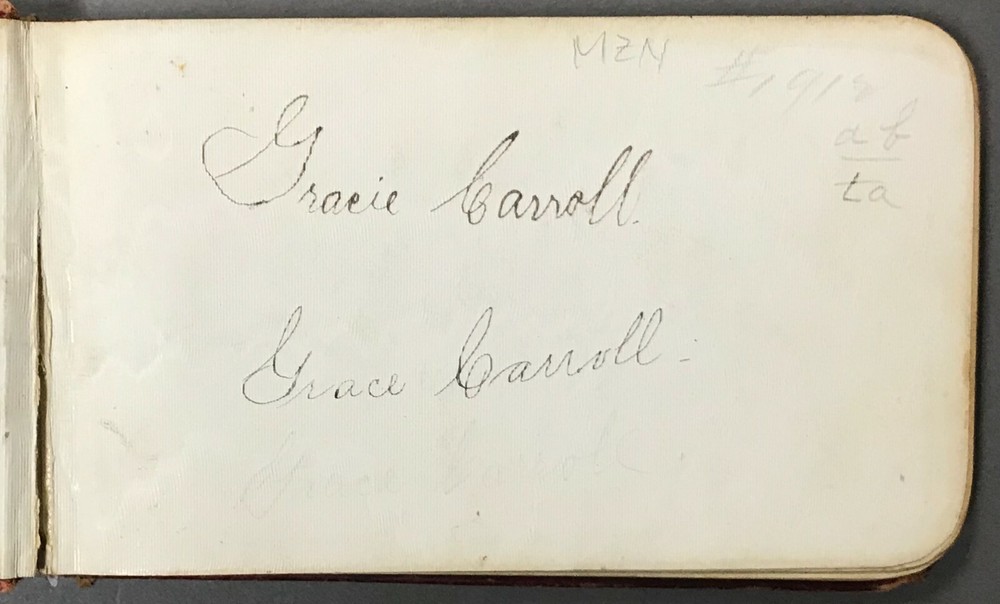 MZN
#1918
ab
ta
Gracie Carroll.
Grace Carroll.
Grace Carroll.